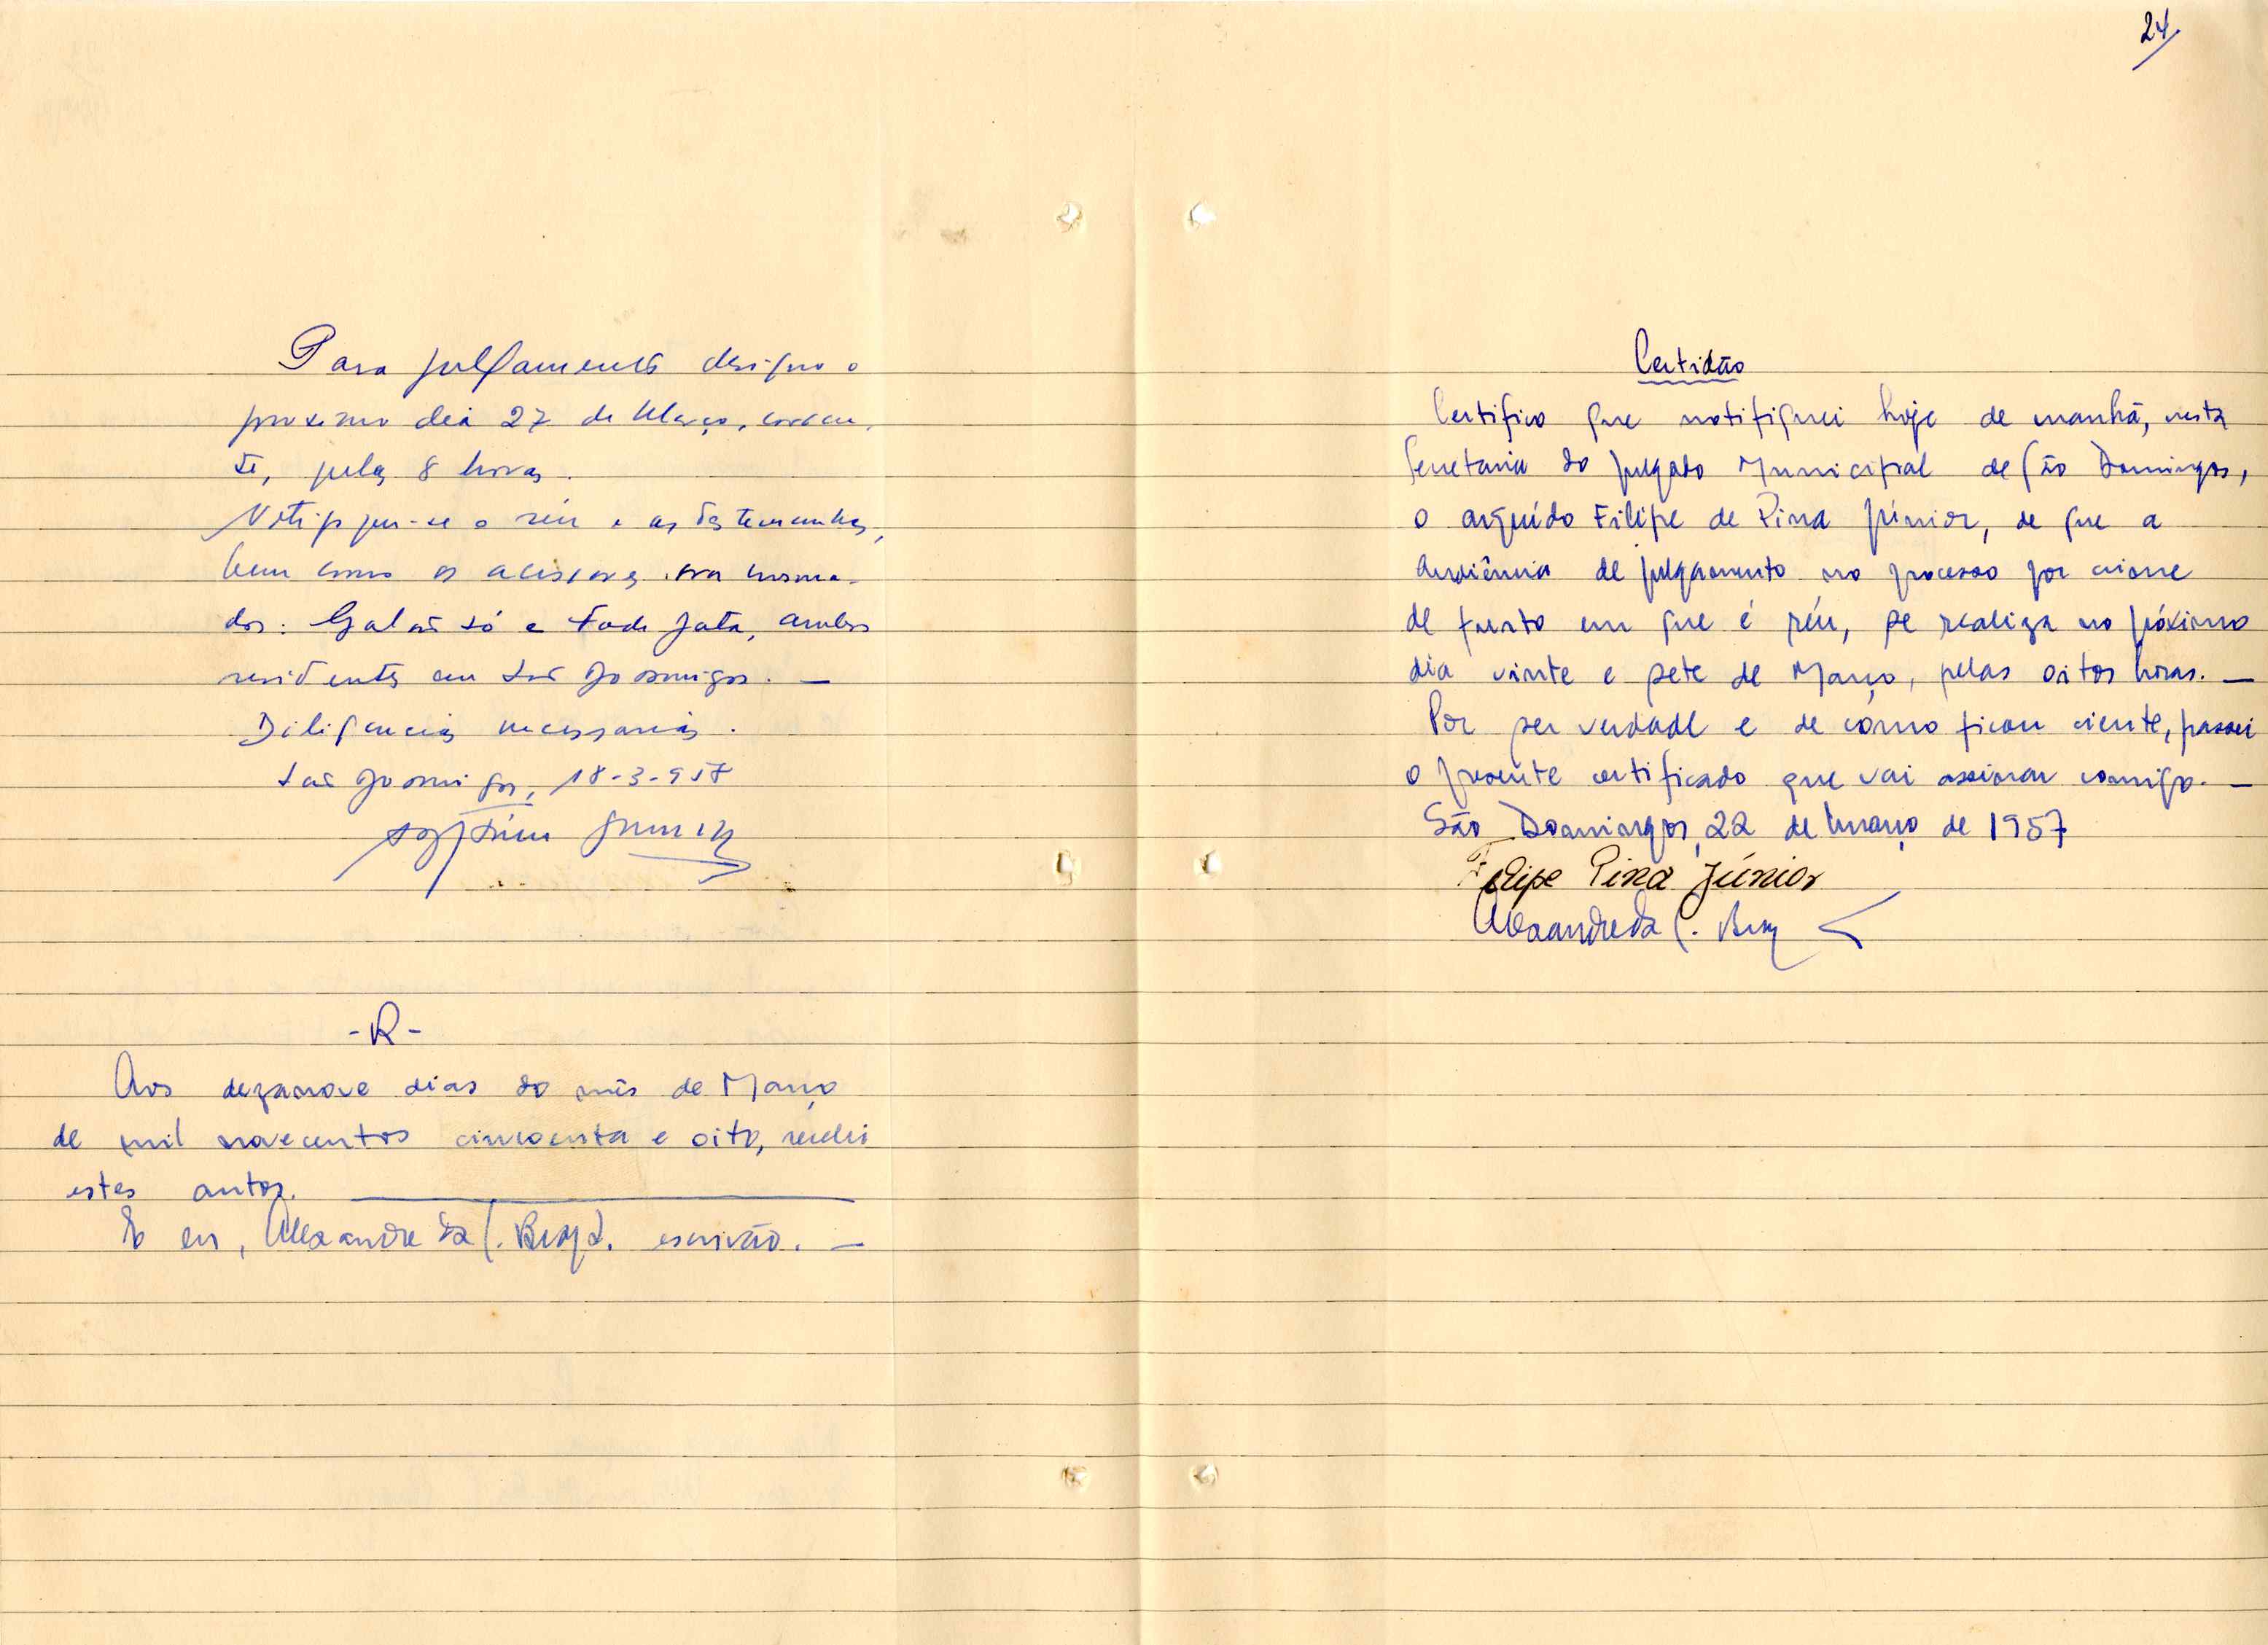 Para julgamento designo o
proximo dia 27 de Março, corren-
te, pelas 8 horas.
Notifique-se o réu e as testemunhas,
bem como os acessores
dos: Galão Só e Fode Jata, ambos
residentes em São Domingos. —
Diligencias necessarias.
São Domingos, 18-3-957
-R-
Aos dezanove dias do mês de Março
de mil novecentos cincoenta e oito, recebi
estes autos.
E eu, Alexandre da C. escrivão. —
24
Certidão
Certifico que notifiquei hoje de manhã, nesta
Secretaria do Julgado Municipal de São Domingos,
o arguído Filipe de Pina Júnior, de que a
audiência de julgamento no processo por crime
de furto em que é réu, se realiza no póximo
dia vinte e sete de Março, pelas oitos horas. —
Por ser verdade e de como ficou ciente, passei
o presente certificado que vai assinar comigo. —
São Domingos, 22 de Março de 1957
Felipe Pina Júnior
Alexandre da C.